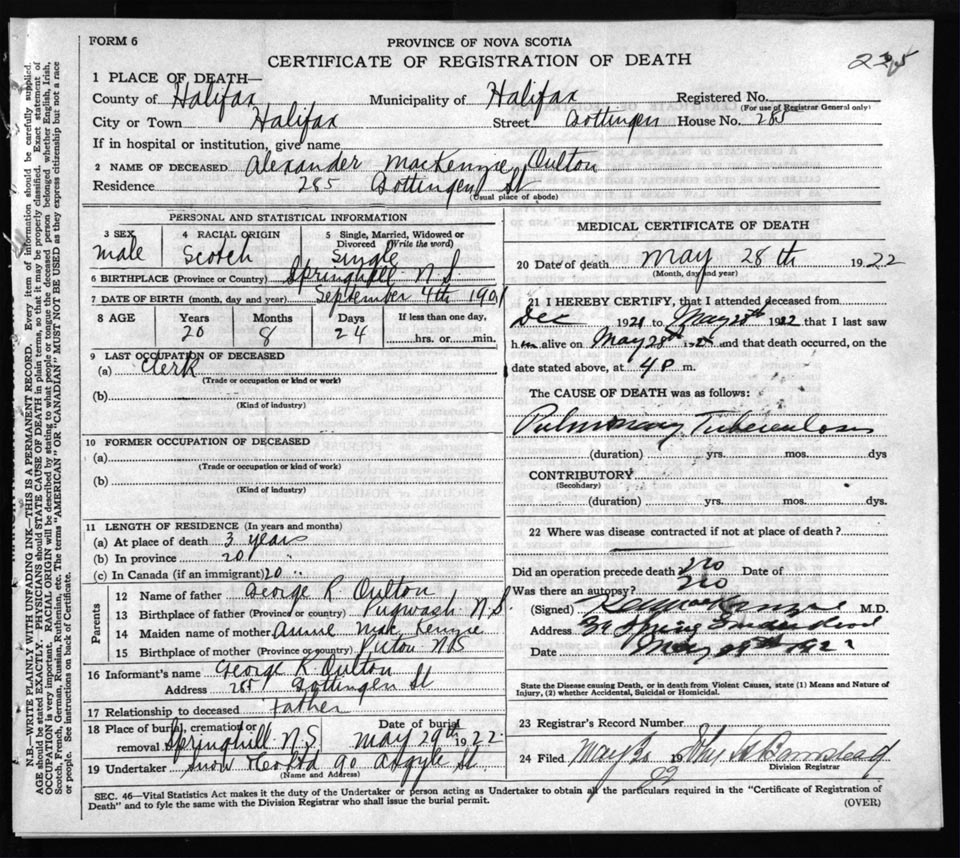 FORM 6
PROVINCE OF NOVA SCOTIA
CERTIFICATE OF REGISTRATION OF DEATH
235
1 PLACE OF DEATH—
County of Halifax Municipality of Halifax Registered No.
(For use of Registrar General only)
City or Town Halifax Street Gottingen House No. 285
If in hospital or institution, give name
2 NAME OF DECEASED Alexander MacKenzie Oulton
Residence 285 Gottingen St
(Usual place of abode)
PERSONAL AND STATISTICAL INFORMATION
3 SEX 4 RACIAL ORIGIN 5 Single, Married, Widowed or Divorced (Write the word)
male Scotch Single
6 BIRTHPLACE (Province or Country) Springhill N S
7 DATE OF BIRTH (month, day and year) September 4th 1901
8 AGE Years Months Days If less than one day,
20 8 24 hrs. or min.
9 LAST OCCUPATION OF DECEASED
(a) Clerk
(Trade or occupation or kind or work)
(b)
(Kind of industry)
10 FORMER OCCUPATION OF DECEASED
(a)
(Trade or occupation or kind of work)
(b)
(Kind of industry)
11 LENGTH OF RESIDENCE (In years and months)
(a) At place of death 3 years
(b) In province 20 "
(c) In Canada (if an immigrant) 20 "
Parents
12 Name of father George R. Oulton
13 Birthplace of father (Province or country) Pugwash N.S.
14 Maiden name of mother Annie MacKenzie
15 Birthplace of mother (Province or country) Pictou NS
16 Informant's name George R. Oulton
Address 285 Gottingen St
17 Relationship to deceased Father
18 Place of burial, cremation or removal Springhill N.S. Date of burial May 29th 1922
19 Undertaker Snow & Co Ltd 90 Argyle St
(Name and Address)
MEDICAL CERTIFICATE OF DEATH
20 Date of death May 28th 1922
(Month, day and year)
21 I HEREBY CERTIFY, that I attended deceased from
Dec 1921 to May 28th 1922 that I last saw
him alive on May 28th and that death occurred, on the
date stated above, at 4 P m.
The CAUSE OF DEATH was as follows:
Pulmonary Tuberculosis
(duration) yrs. mos. dys
CONTRIBUTORY
(Secondary)
(duration) yrs. mos. dys.
22 Where was disease contracted if not at place of death?
Did an operation precede death no Date of
Was there an autopsy? no
(Signed) M.D.
Address Spring
Date May 1922
State the Disease causing Death, or in death from Violent Causes, state (1) Means and Nature of
Injury, (2) whether Accidental, Suicidal or Homicidal.
23 Registrar's Record Number
24 Filed May 30 19 22
Division Registrar
SEC. 46—Vital Statistics Act makes it the duty of the Undertaker or person acting as Undertaker to obtain all the particulars required in the "Certificate of Registration of
Death" and to fyle the same with the Division Registrar who shall issue the burial permit.
(OVER)
N.B.—WRITE PLAINLY WITH UNFADING INK—THIS IS A PERMANENT RECORD. Every item of information should be carefully supplied.
AGE should be stated EXACTLY. PHYSICIANS should STATE CAUSE OF DEATH in plain terms, so that it may be properly classified. Exact statement of
OCCUPATION is very important. RACIAL ORIGIN will be described by stating to what people or tongue the deceased person belonged whether English, Irish,
Scotch, French, German, Russian, Ruthenian, etc. The terms "AMERICAN" OR "CANADIAN" MUST NOT BE USED as they express citizenship but not a race
or people. See instructions on back of Certificate.